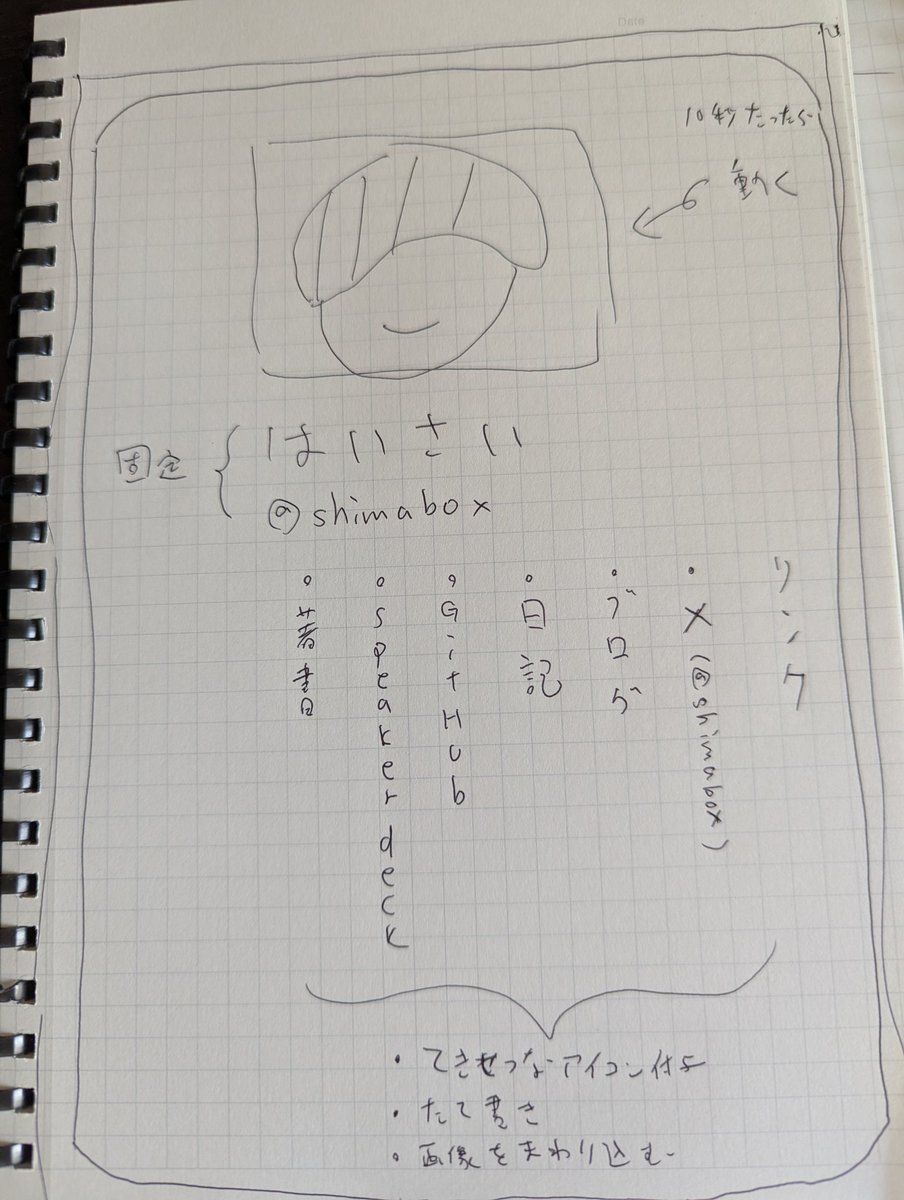 Date
10秒たったら
動く
固定
はいさい
@shimabox
リンク
・X(@shimabox)
・ブログ
・日記
・GitHub
・Speaker deck
・著書
・てきせつなアイコン付与
・たて書き
・画像をまわり込む